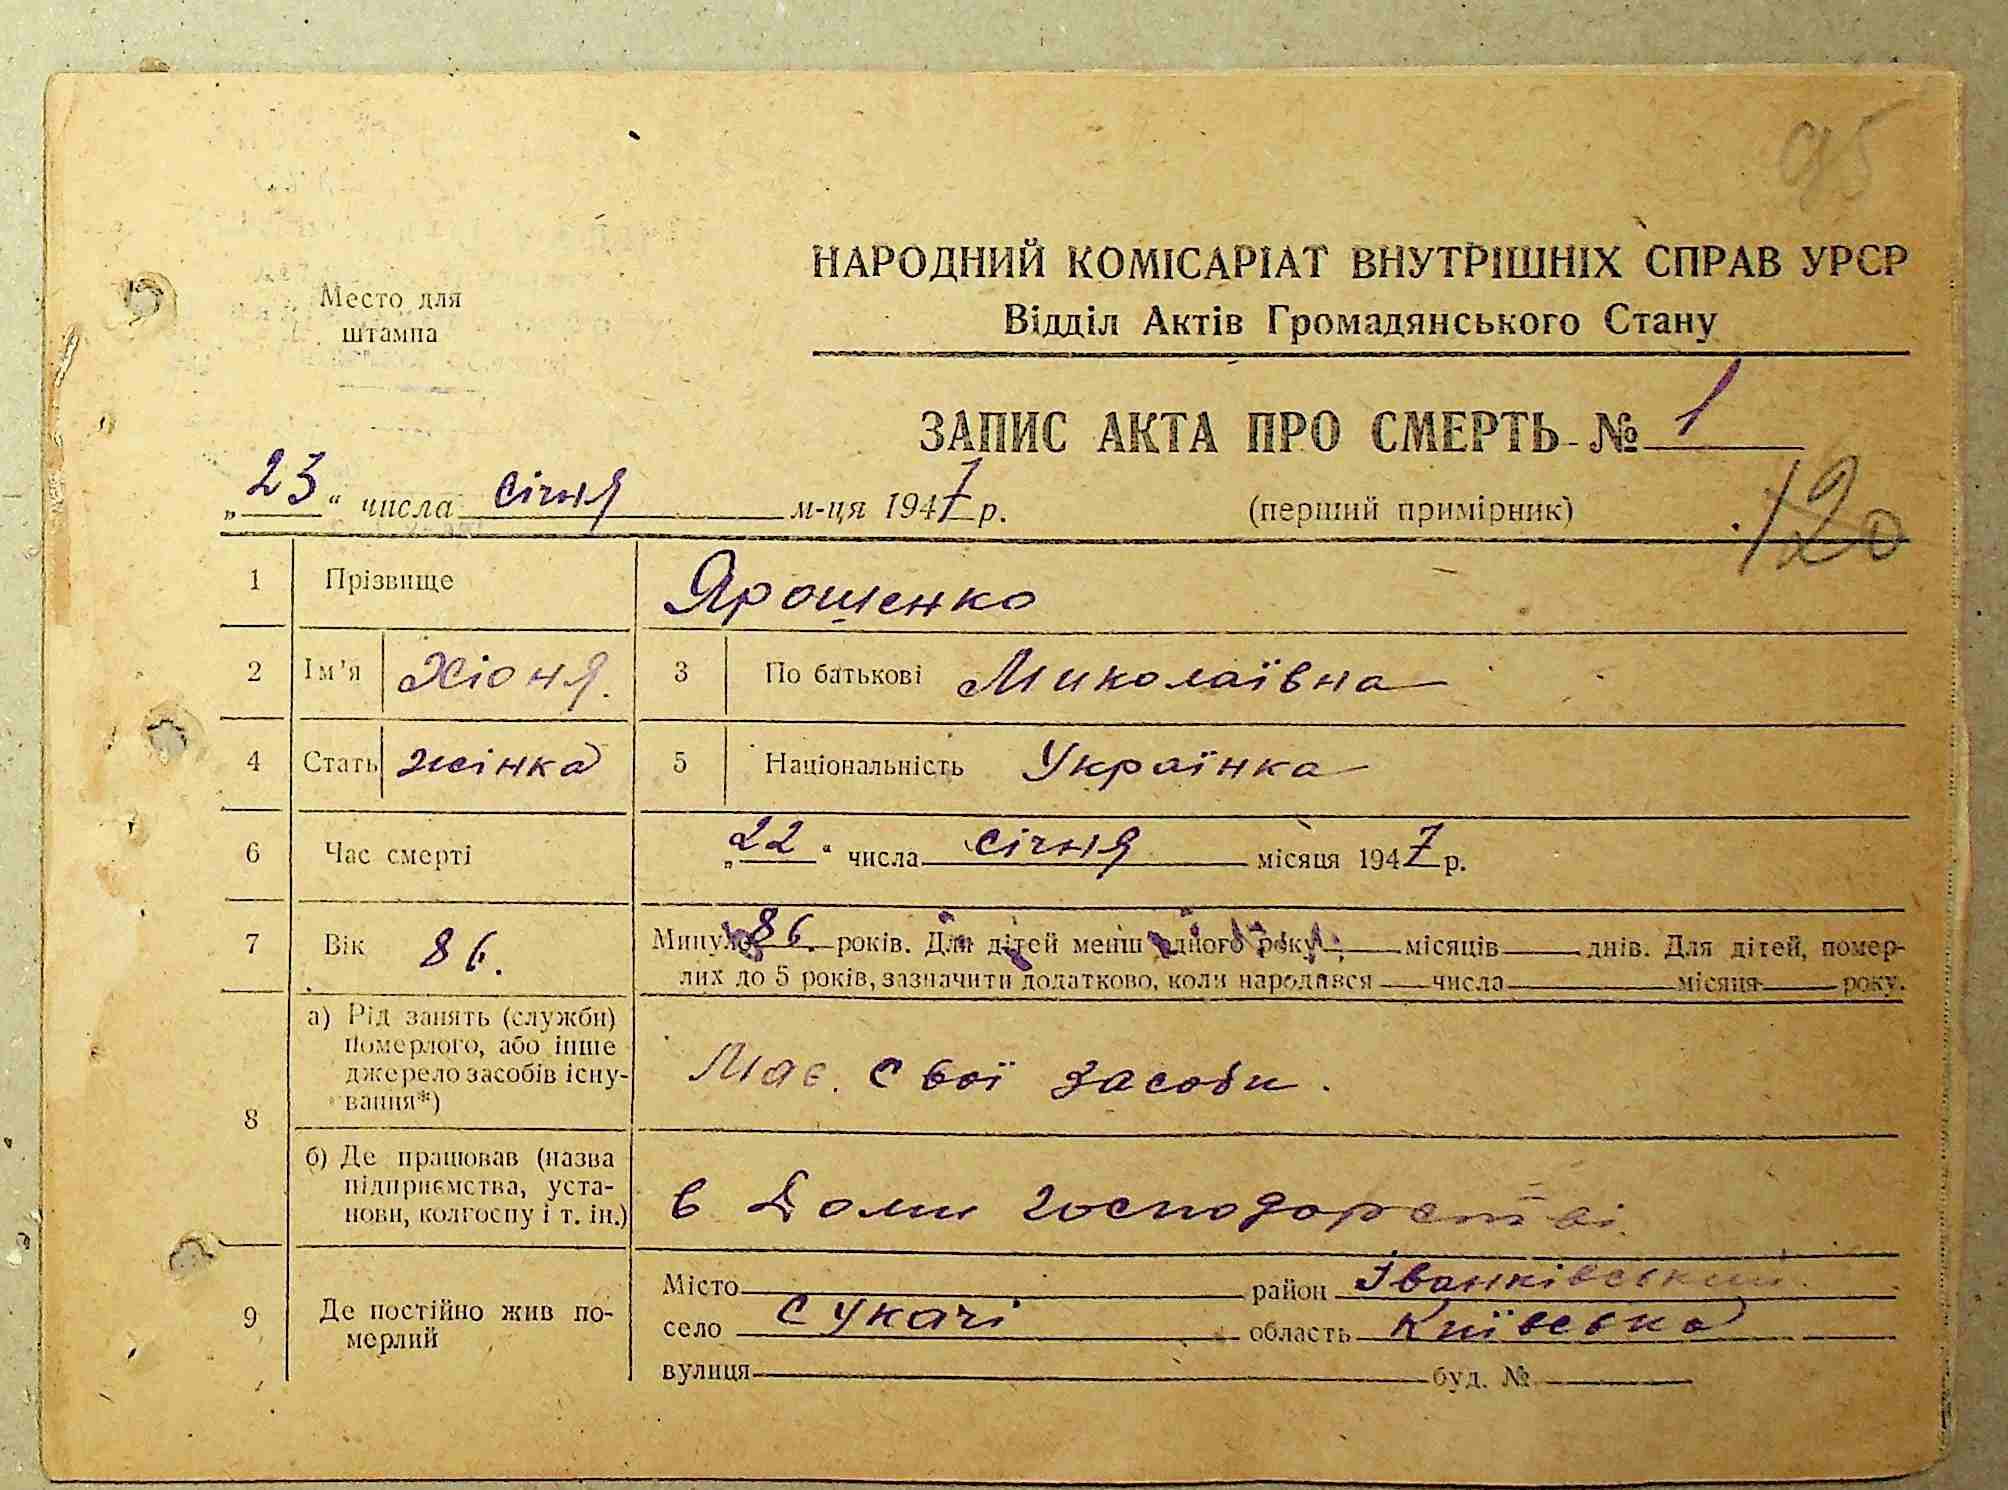 95
Место для
штампа
НАРОДНИЙ КОМІСАРІАТ ВНУТРІШНІХ СПРАВ УРСР
Відділ Актів Громадянського Стану
ЗАПИС АКТА ПРО СМЕРТЬ № 1
„23“ числа січня м-ця 1947 р. (перший примірник)
120
1 Прізвище Ярошенко
2 Ім'я Хіоня. 3 По батькові Миколаївна
4 Стать жінка 5 Національність Українка
6 Час смерті „22“ числа січня місяця 1947 р.
7 Вік 86. Минуло 86. років. Для дітей менш одного року місяців днів. Для дітей, помер-
лих до 5 років, зазначити додатково, коли народився числа місяця року.
8 а) Рід занять (служби)
померлого, або інше
джерело засобів існу-
вання*)
Має. свої засоби.
б) Де працював (назва
підприємства, уста-
нови, колгоспу і т. ін.)
в Доми господарстві.
9 Де постійно жив по-
мерлий
Місто район Іванківський.
село Сукачі область Київська
вулиця буд. №